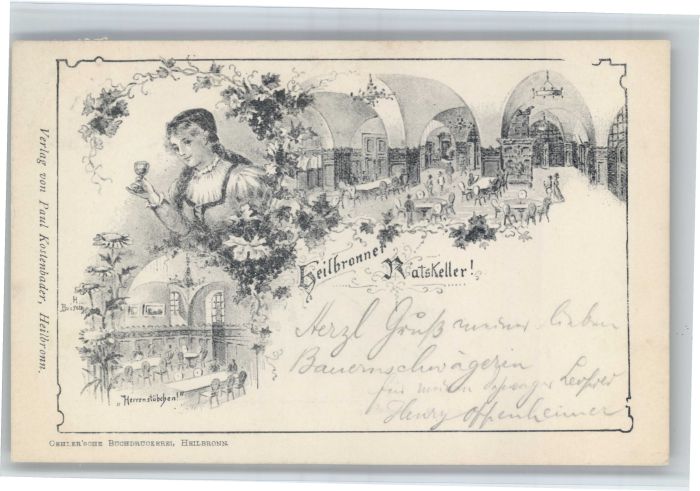 Verlag von Paul Kostenbader, Heilbronn.
Heilbronner Ratskeller!
„Herrenstübchen!"
Herzl Gruß meiner lieben
Bauernschwägerin
für meinen
Henry Oppenheimer
OEHLER'SCHE BUCHDRUCKEREI, HEILBRONN.